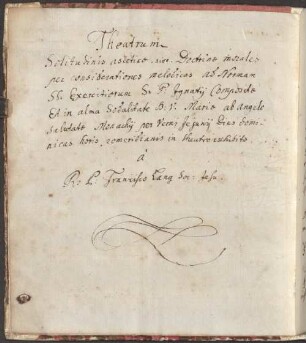 Theatrum
Solitudinis asceticae sive Doctrinae morales
per considerationes melodicas ad Normam
SS. Exercitiorum S. P. Ignatij Compositae
Et in alma Sodalitate B. V. Mariae ab angelo
salutatae Monachij per Verni Jejunij dies Domi-
nicas horis pomeridianis in theatro exhibitae
à
P. Francisco Lang Soc: Jesu.